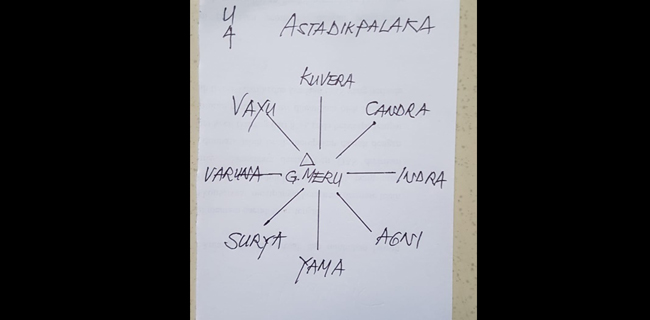 U
A
ASTADIKPALAKA
KUVERA
VAYU
CANDRA
VARUNA
G.MERU
INDRA
SURYA
AGNI
YAMA